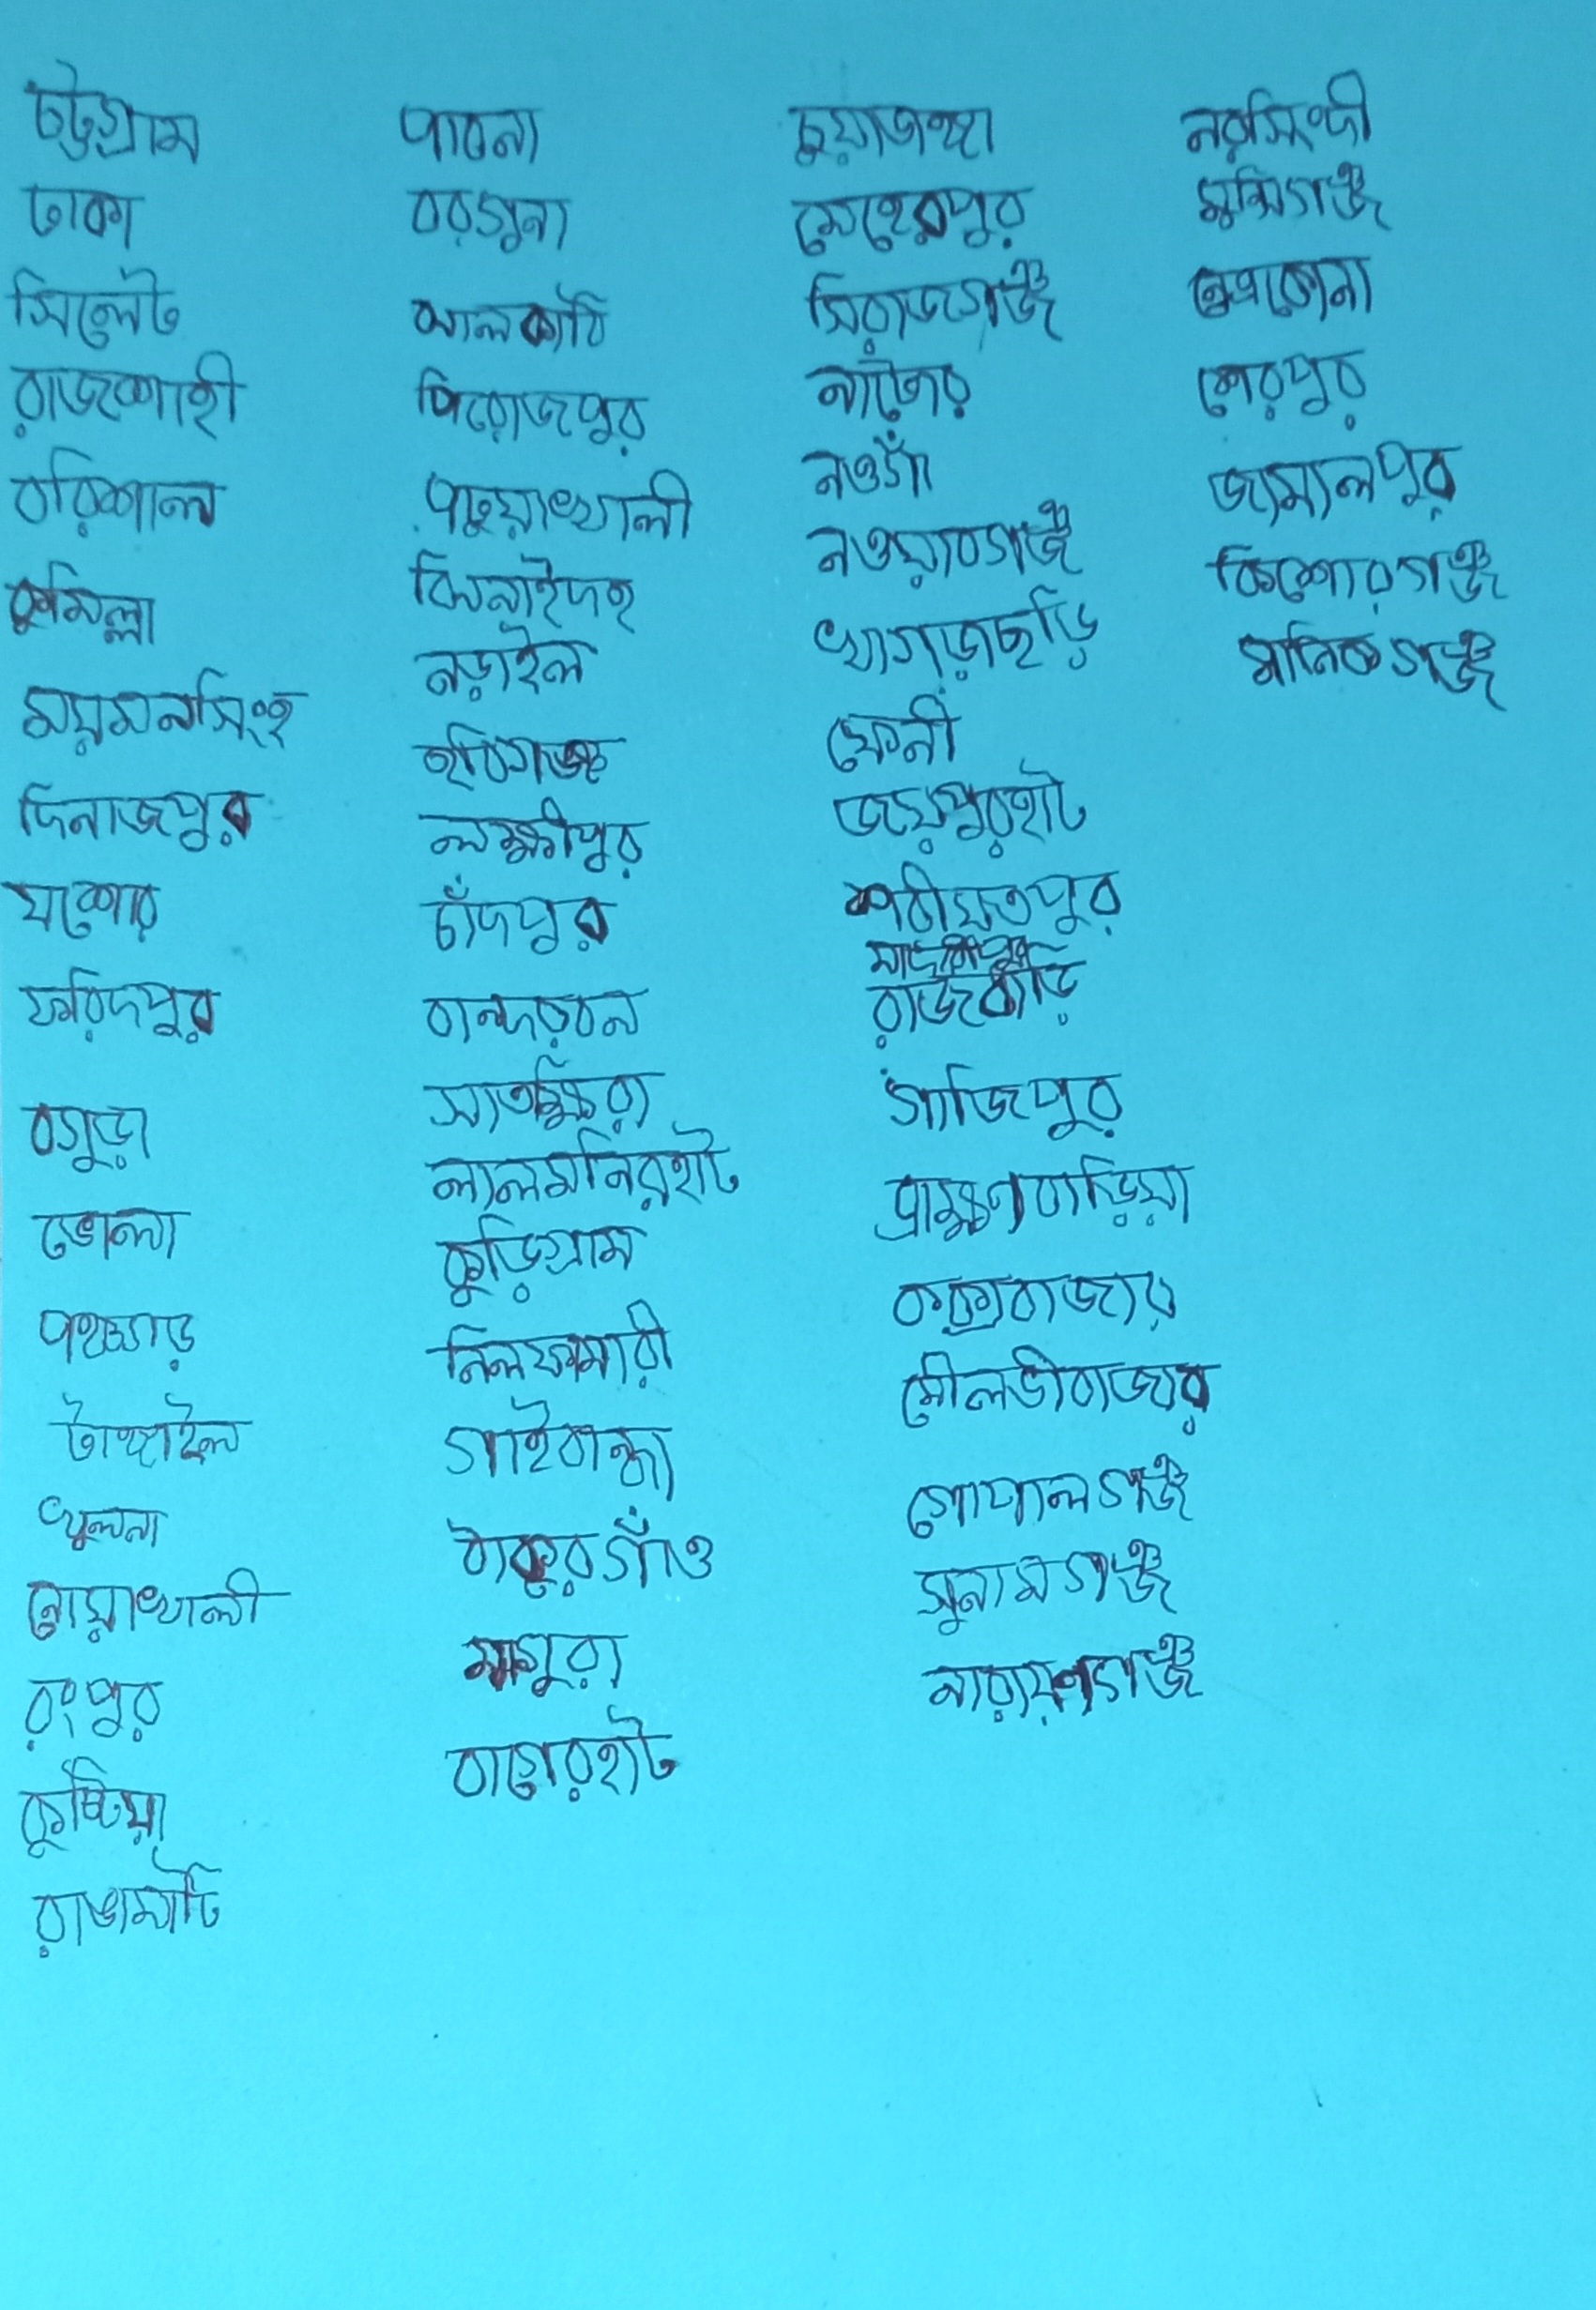 চট্টগ্রাম
ঢাকা
সিলেট
রাজশাহী
বরিশাল
কুমিল্লা
ময়মনসিংহ
দিনাজপুর
যশোর
ফরিদপুর
বগুড়া
ভোলা
পঞ্চগড়
টাঙ্গাইল
খুলনা
নোয়াখালী
রংপুর
কুষ্টিয়া
রাঙামাটি
পাবনা
বরগুনা
ঝালকাঠি
পিরোজপুর
পটুয়াখালী
ঝিনাইদহ
নড়াইল
হবিগঞ্জ
লক্ষ্মীপুর
চাঁদপুর
বান্দরবন
সাতক্ষিরা
লালমনিরহাট
কুড়িগ্রাম
নিলফামারী
গাইবান্ধা
ঠাকুরগাঁও
মাগুরা
বাগেরহাট
চুয়াডাঙ্গা
মেহেরপুর
সিরাজগঞ্জ
নাটোর
নওগাঁ
নওয়াবগঞ্জ
খাগড়াছড়ি
ফেনী
জয়পুরহাট
শরীয়তপুর
মাদারীপুর
রাজবাড়ি
গাজিপুর
ব্রাহ্মণবাড়িয়া
কক্সবাজার
মৌলভীবাজার
গোপালগঞ্জ
সুনামগঞ্জ
নারায়ণগঞ্জ
নরসিংদী
মুন্সিগঞ্জ
নেত্রকোনা
শেরপুর
জামালপুর
কিশোরগঞ্জ
মানিকগঞ্জ